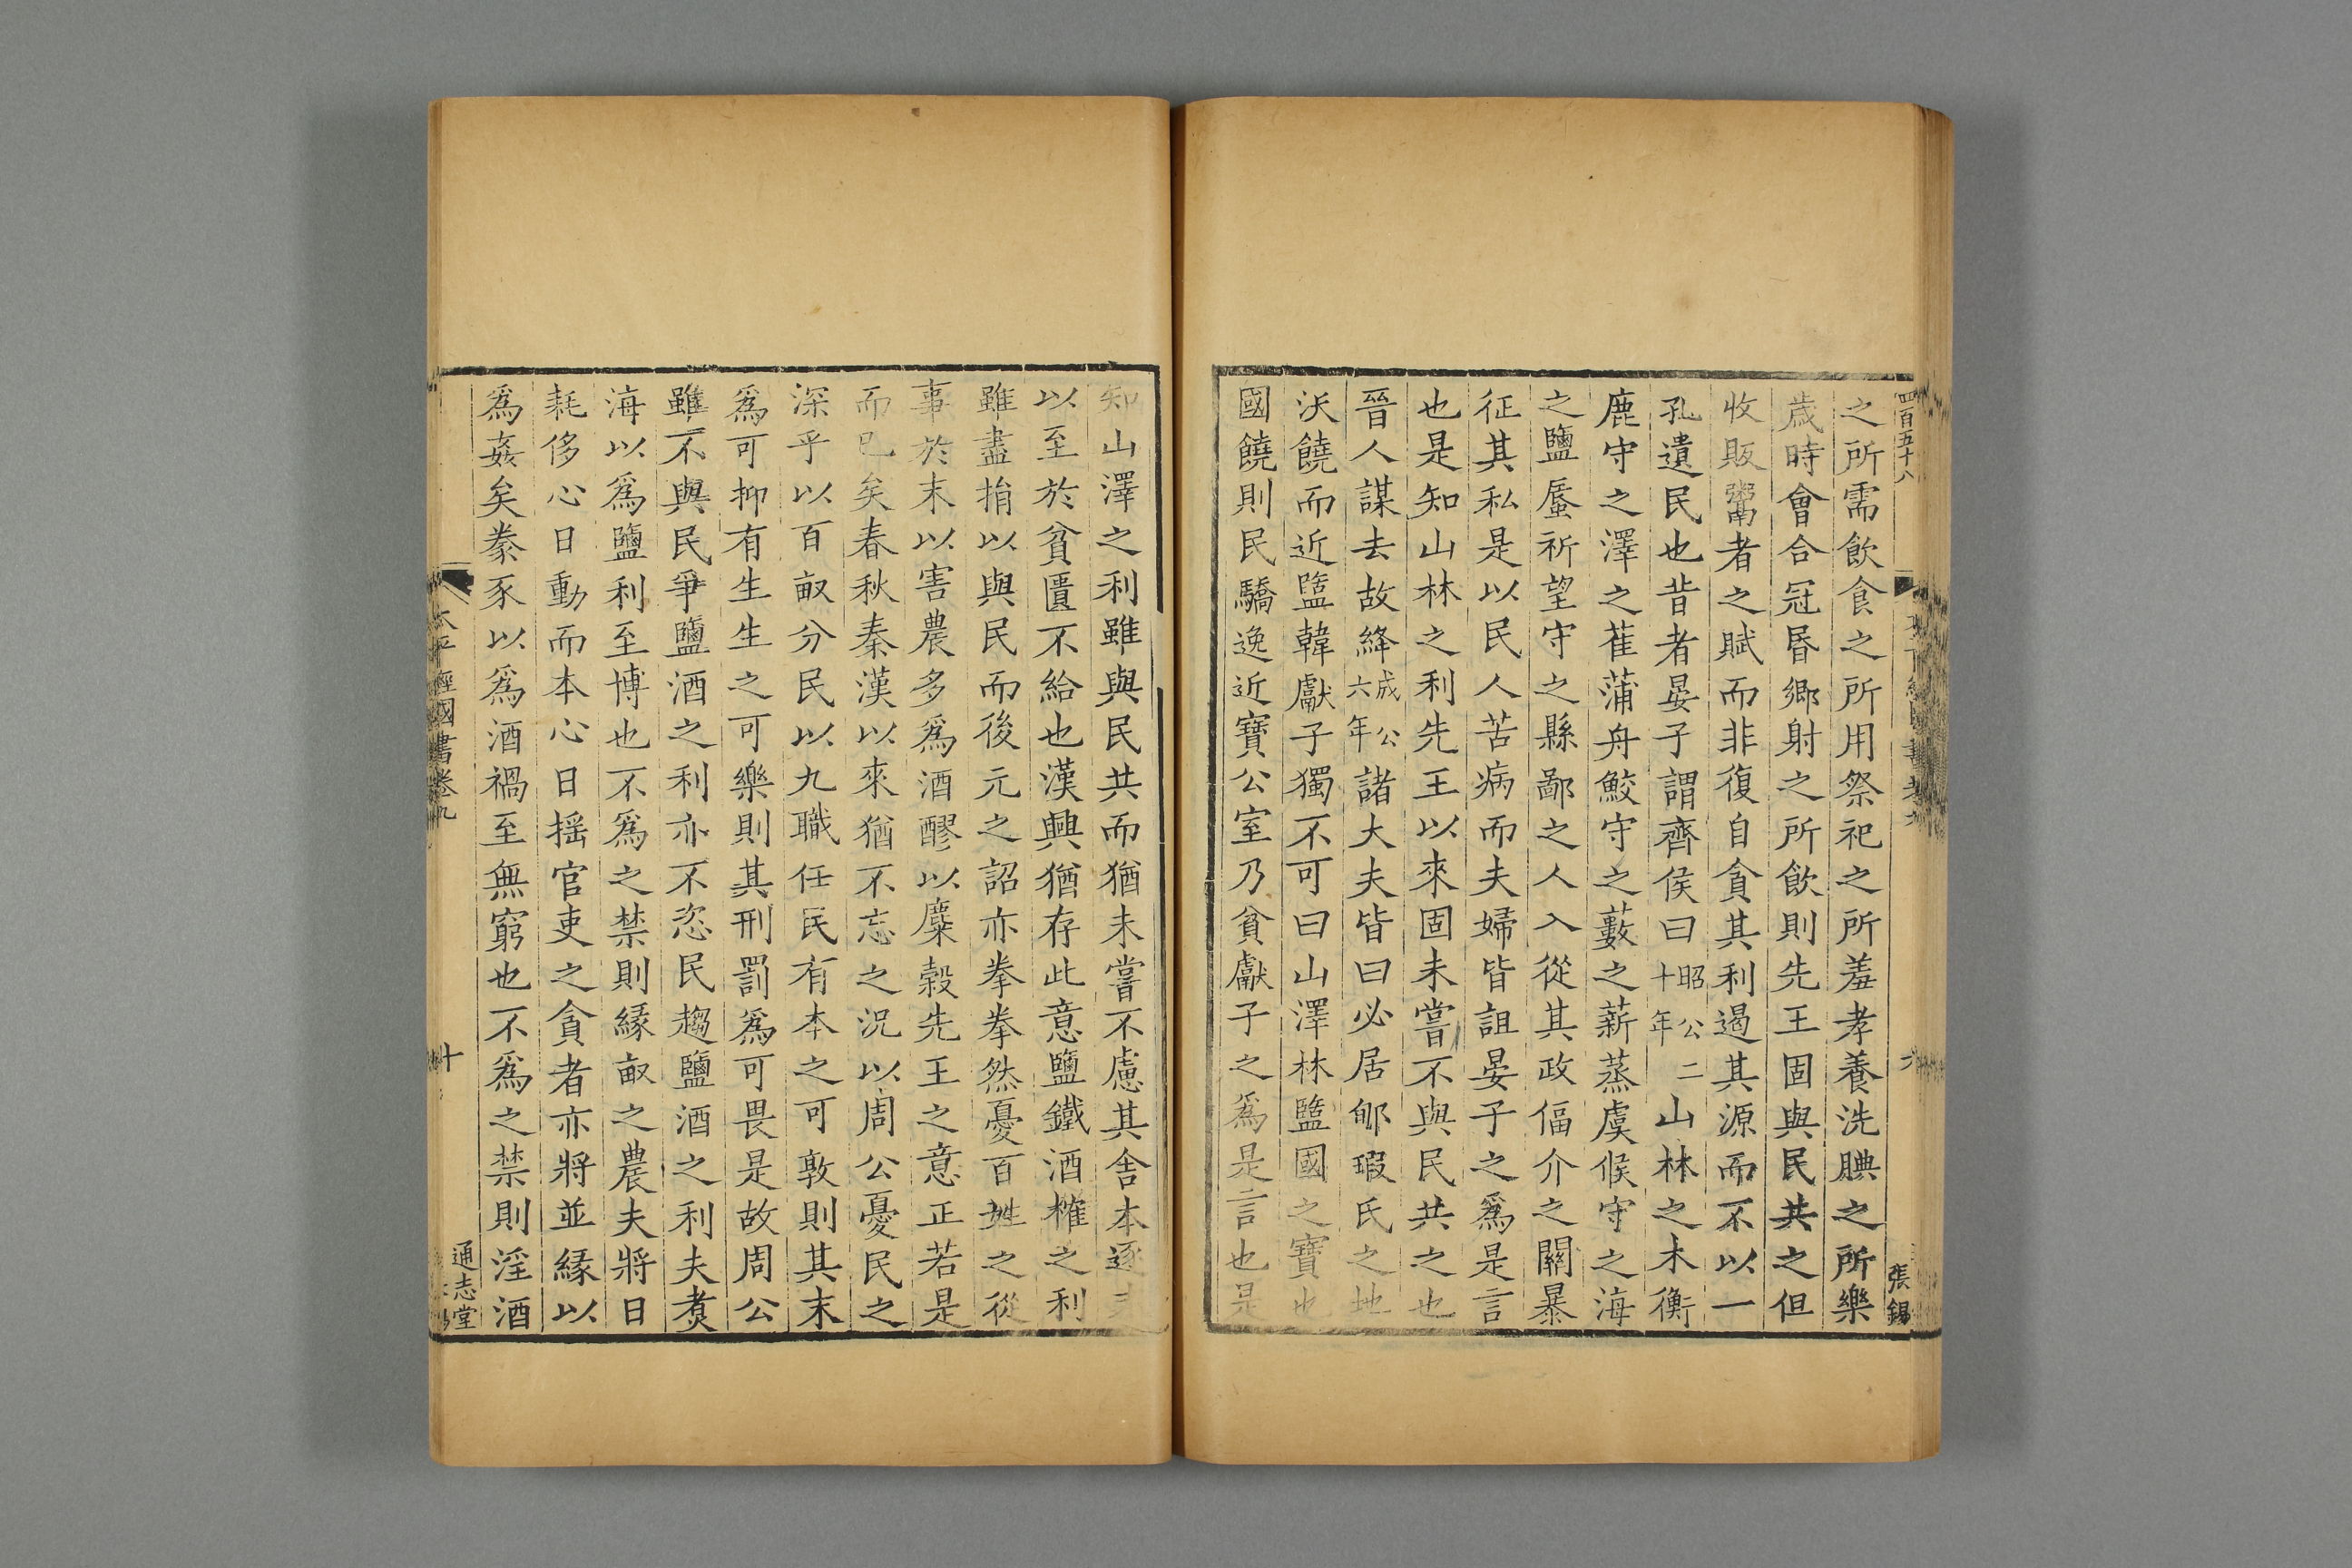 四百五十八
張錫
之所需飲食之所用祭祀之所羞孝養洗腆之所樂
歲時會合冠昬鄉射之所飲則先王固與民共之但
收販鬻者之賦而非復自貪其利遏其源而不以一
孔遺民也昔者晏子謂齊侯曰昭公二十年山林之木衡
鹿守之澤之萑蒲舟鮫守之藪之薪蒸虞候守之海
之鹽蜃祈望守之縣鄙之人入從其政偪介之關暴
征其私是以民人苦病而夫婦皆詛晏子之爲是言
也是知山林之利先王以來固未嘗不與民共之也
晉人謀去故絳成公六年諸大夫皆曰必居郇瑕氏之地
沃饒而近盬韓獻子獨不可曰山澤林盬國之寶也
國饒則民驕逸近寶公室乃貧獻子之爲是言也是
知山澤之利雖與民共而猶未嘗不慮其舍本逐末
以至於貧匱不給也漢興猶存此意鹽鐵酒榷之利
雖盡捐以與民而後元之詔亦拳拳然憂百姓之從
事於末以害農多爲酒醪以糜穀先王之意正若是
而已矣春秋秦漢以來猶不忘之況以周公憂民之
深乎以百畝分民以九職任民有本之可敦則其末
爲可抑有生生之可樂則其刑罰爲可畏是故周公
雖不與民爭鹽酒之利亦不恣民趨鹽酒之利夫煑
海以爲鹽利至博也不爲之禁則緣畝之農夫將日
耗侈心日動而本心日揺官吏之貪者亦將並緣以
爲姦矣豢豕以爲酒禍至無窮也不爲之禁則淫酒
太平經國書卷九
十
通志堂